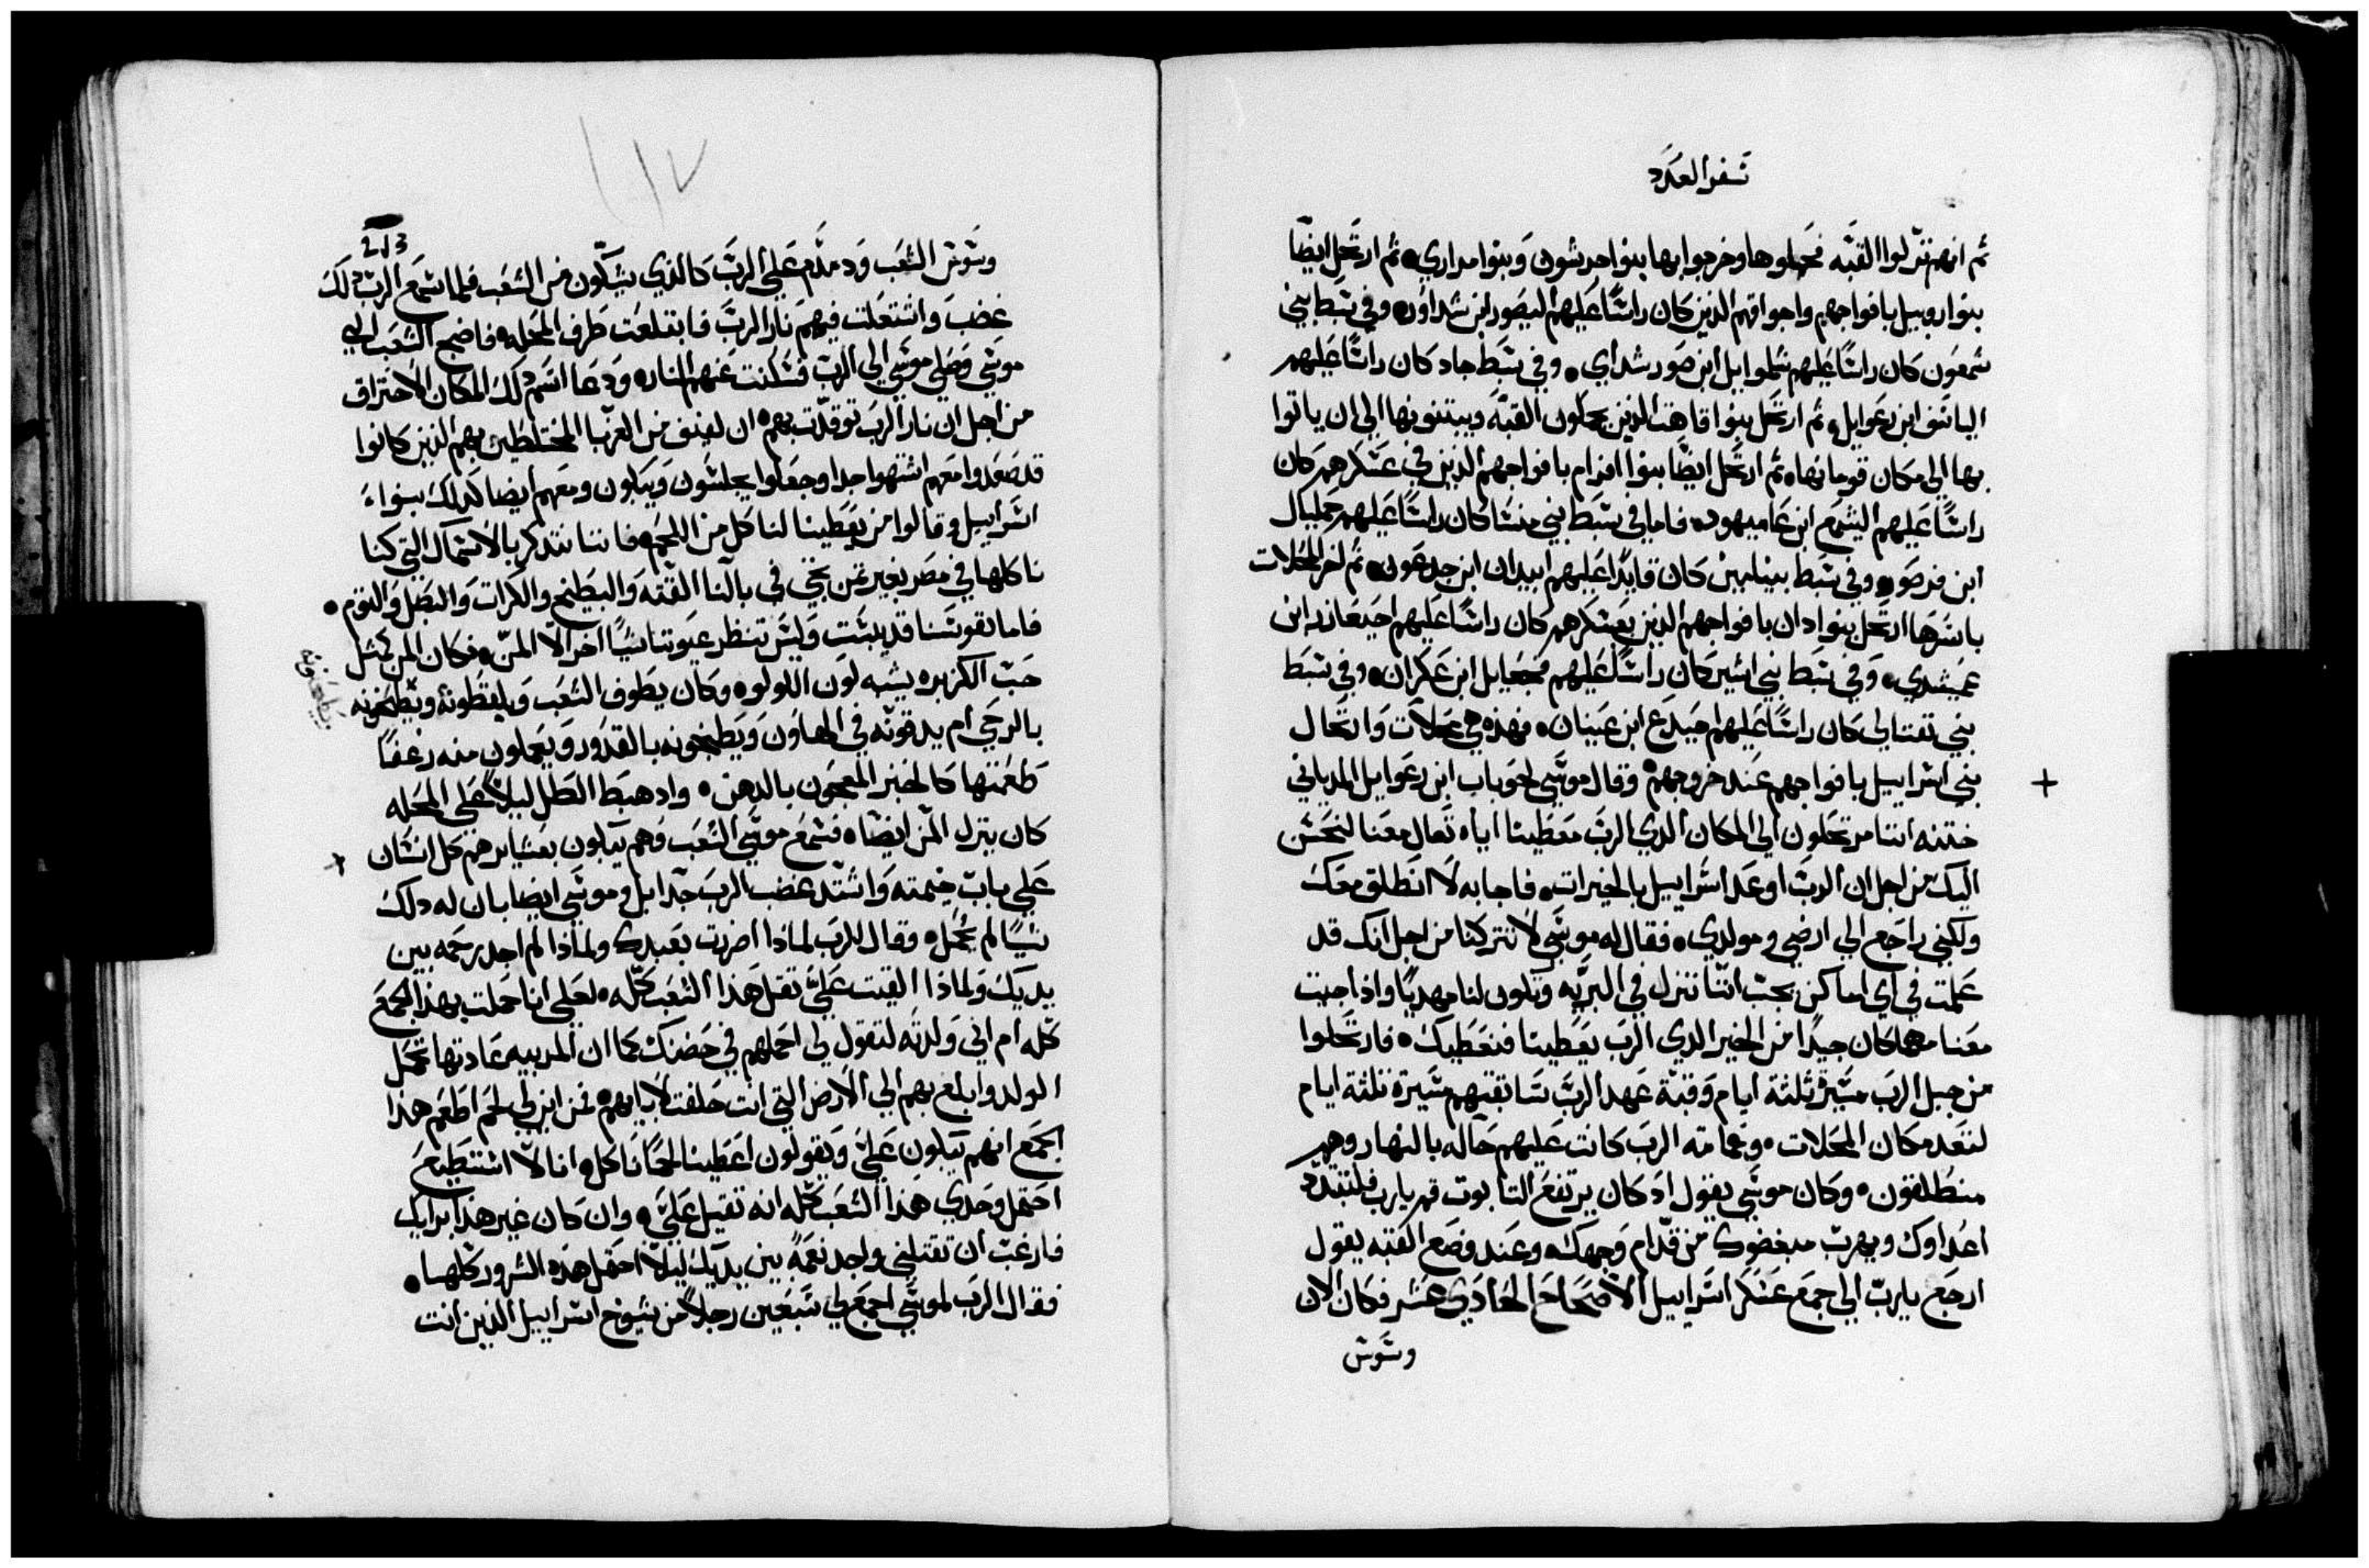 سفر العدد
ثم انهم نزلوا القبه فحملوها وخرجوا بها بنوا جرشون وبنوا مراري ثم ارتحل ايضًا
بنوا روبيل بافواجهم واجواقهم الذين كان راسًا عليهم ليصور ابن شداور وفي سبط بني
شمعون كان راسًا عليهم شلموايل ابن صور شداي وفي سبط جاد كان راسًا عليهم
الياسف ابن رعوايل ثم ارتحل بنوا قاهت الذين يحملون القبه ويبتنونها الي ان ياتوا
بها الي مكان قومانها ثم ارتحل ايضًا بنوا افرام بافواجهم الذين في عسكرهم كان
راسًا عليهم اليشمع ابن عاميهود فاما في سبط بني منسا كان راسًا عليهم جمليال
ابن فدصور وفي سبط بينامين كان قايدًا عليهم ابيدان ابن جدعون ثم اخر المحلات
باسرها ارتحل بنوا دان بافواجهم الذين بعسكرهم كان راسًا عليهم احيعازر ابن
عميشدي وفي سبط بني اشير كان راسًا عليهم فجعايل ابن عكران وفي سبط
بني نفتالي كان راسًا عليهم احيدع ابن عينان فهذه هي محلات وارتحال
بني اسراييل بافواجهم عند خروجهم وقال موسي لحوباب ابن رعوايل المدياني
ختنه اننا مرتحلون الي المكان الذي الرب معطينا اياه تعال معنا لنحسن
اليك من اجل ان الرب اوعد اسراييل بالخيرات فاجابه لا انطلق معك
ولكني راجع الي ارضي ومولدي فقال له موسي لا تتركنا من اجل انك قد
علمت في اي اماكن يجب اننا ننزل في البريه وتكون لنا مهديًا واذا جيت
معنا مهما كان جيدًا من الخير الذي الرب يعطينا فنعطيك فارتحلوا
من جبل الرب مسيرة ثلثة ايام وقبة عهد الرب سابقتهم مسيرة ثلثة ايام
لتعد مكان المحلات وغمامة الرب كانت عليهم حاله بالنهار وهم
منطلقون وكان موسي يقول اذ كان يرتفع التابوت قم يارب فلتتبدد
اعداوك ويهرب مبغضوك من قدام وجهك وعند وضع القبه يقول
ارجع يارب الي جمع عسكر اسراييل الاصحاح الحادي عشر فكان الان
وشوش
213
وشوش الشعب ودمدم علي الرب كالذي يشكون من الشعب فلما سمع الرب ذلك
غضب واشتعلت فيهم نار الرب فابتلعت طرف المحله فاضج الشعب الي
موسي وصلي موسي الي الرب فسكنت عنهم النار ودعا اسم ذلك المكان الاحتراق
من اجل ان نار الرب توقدت بهم ان لفيف من الغربا المختلطين بهم الذين كانوا
قد صعدوا معهم اشتهوا جدا وجعلوا يجلسون ويبكون ومعهم ايضا كذلك بنواء
اسراييل وقالوا من يعطينا لناكل من اللحم فاننا نتذكر بالاسماك التي كنا
ناكلها في مصر بغير ثمن يجي في بالنا القته والبطيخ والكرات والبصل والتوم
فاما نفوسنا قد يبست وليس تنظر عيوننا شيًا اخر الا المن فكان المن كمثل
حب الكزبره يشبه لون اللولو وكان يطوف الشعب ويلقطونه ويطحنونه
بالرحي ام يدقونه في الهاون ويطبخونه بالقدور ويعملون منه رغفًا
طعمتها كالخبز المعجون بالدهن واذ هبط الطل ليلاً علي المحله
كان ينزل المن ايضًا فسمع موسي الشعب وهم يبكون بعشايرهم كل انسان
علي باب خيمته واشتد غضب الرب جدا بل وموسي ايضا بان له ذلك
شيًا لم يحمل وقال للرب لماذا اضريت بعبدك ولماذا لم اجد رحمه بين
يديك ولماذا القيت علي تقل هذا الشعب كله لعلي انا حملت بهذا الجمع
كله ام اني ولدته لتقول لي احملهم في حضنك كما ان المربيه عادتها تحمل
الولد وابلغ بهم الي الارض التي انت حلفت لابايهم فمن اين لي لحم اطعم هذا
الجمع انهم يبكون علي ويقولون اعطينا لحمًا ناكل انا لا استطيع
احتمل وحدي هذا الشعب كله انه تقيل علي وان كان غير هذا برايك
فارغب ان تقتلني واجد نعمةً بين يديك ليلا احتمل هذه الشرور كلها
فقال الرب لموسي اجمع لي سبعين رجلاً من شيوخ اسراييل الذين انت